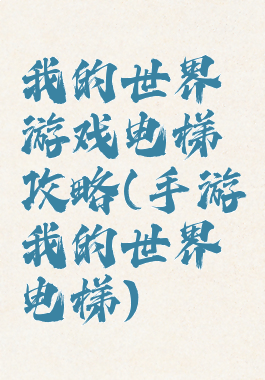 我的世界
游戏电梯
攻略(手游
我的世界
电梯)